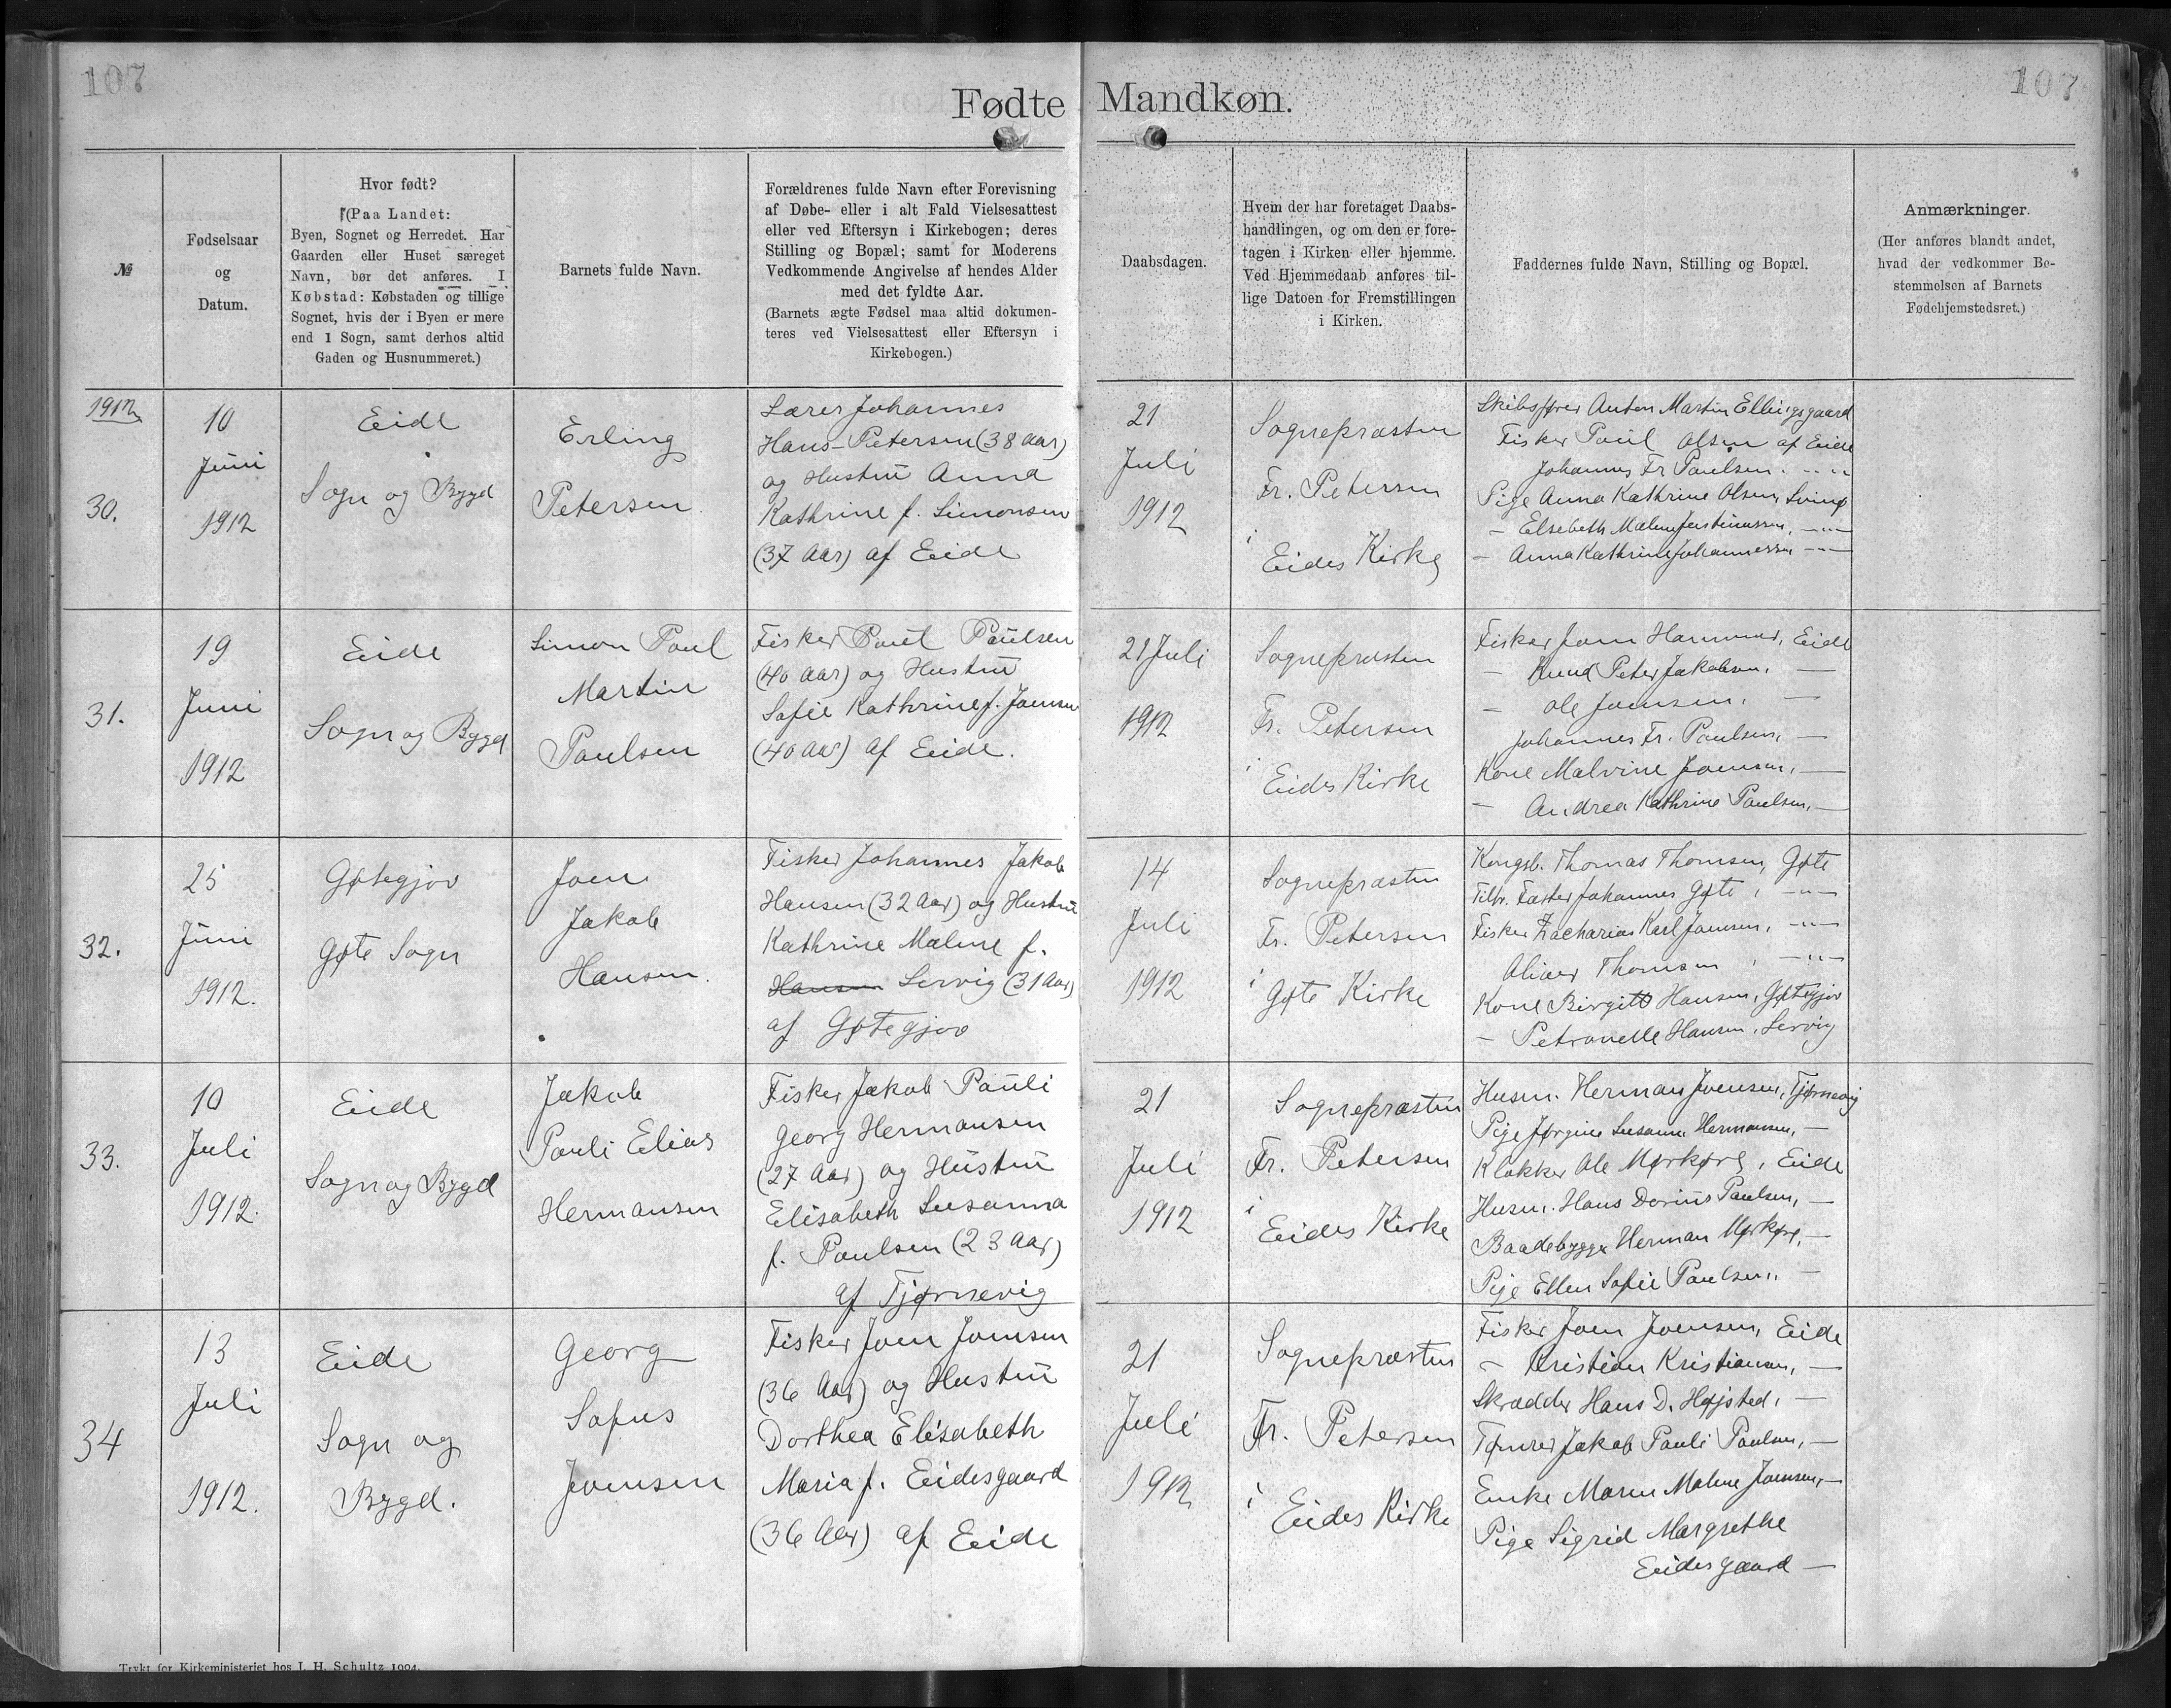 107
107
Fødte Mandkøn.
№
Fødselsaar
og
Datum.
Hvor født?
(Paa Landet:
Byen, Sognet og Herredet. Har
Gaarden eller Huset særeget
Navn, bør det anføres. I
Købstad: Købstaden og tillige
Sognet, hvis der i Byen er mere
end 1 Sogn, samt derhos altid
Gaden og Husnummeret.)
Barnets fulde Navn.
Forældrenes fulde Navn efter Forevisning
af Døbe- eller i alt Fald Vielsesattest
eller ved Eftersyn i Kirkebogen; deres
Stilling og Bopæl; samt for Moderens
Vedkommende Angivelse af hendes Alder
med det fyldte Aar.
(Barnets ægte Fødsel maa altid dokumen-
teres ved Vielsesattest eller Eftersyn i
Kirkebogen.)
Daabsdagen.
Hvem der har foretaget Daabs-
handlingen, og om den er fore-
tagen i Kirken eller hjemme.
Ved Hjemmedaab anføres til-
lige Datoen for Fremstillingen
i Kirken.
Faddernes fulde Navn, Stilling og Bopæl.
Anmærkninger.
(Her anføres blandt andet,
hvad der vedkommer Be-
stemmelsen af Barnets
Fødehjemstedsret.)
1912
30.
10
Juni
1912
Eide
Sogn og Bygd
Erling
Petersen
Lærer Johannes
Hans Petersen (38 Aar)
og Hustru Anna
Kathrine f. Simonsen
(37 Aar) af Eide
21
Juli
1912
Sognepræsten
Fr. Petersen
i
Eides Kirke
Skibsfører Anton Martin Ellingsgaard
Fisker Poul Olsen af Eide
Johannes Fr Poulsen. - " -
Pige Anna Kathrine Olsen, Svinø
- Elsebeth Malene Justinussen, - " -
- Anna Kathrine Johannessen - " -
31.
19
Juni
1912
Eide
Sogn og Bygd
Simon Poul
Martin
Poulsen
Fisker Poul Poulsen
(40 Aar) og Hustru
Sofie Kathrine f. Joensen
(40 Aar) af Eide.
21 Juli
1912
Sognepræsten
Fr. Petersen
i
Eides Kirke
Fisker Joen Hammer, Eide
- Knud Peter Jakobsen, -
- Ole Joensen, -
Johannes Fr. Poulsen, -
Kone Malvine Joensen, -
- Andrea Kathrine Poulsen, -
32.
25
Juni
1912.
Gøtegjov
Gøte Sogn
Joen
Jakob
Hansen.
Fisker Johannes Jakob
Hansen (32 Aar) og Hustru
Kathrine Malene f.
Hansen Lervig (31 Aar)
af Gøtegjov
14
Juli
1912
Sognepræsten
Fr. Petersen
i
Gøte Kirke
Kongsb. Thomas Thomsen, Gøte
Tilfr. Fæster Johannes Gøte, - " -
Fisker Zacharias Karl Joensen, - " -
Oliver Thomsen, - " -
Kone Birgitt Hansen, Gøtegjov
- Petronelle Hansen, Lervig
33.
10
Juli
1912.
Eide
Sogn og Bygd
Jakob
Pauli Elias
Hermansen
Fisker Jakob Pauli
Georg Hermansen
(27 Aar) og Hustru
Elisabeth Susanna
f. Poulsen (23 Aar)
af Tjørnevig
21
Juli
1912
Sognepræsten
Fr. Petersen
i
Eides Kirke
Husm. Herman Joensen, Tjørnevig
Pige Jørgine Susanne Hermansen, -
Klokker Ole Mørkøre, Eide
Husm. Hans Dorius Poulsen, -
Baadebygger Herman Mørkøre, -
Pige Ellen Sofie Poulsen, -
34
13
Juli
1912.
Eide
Sogn og
Bygd.
Georg
Sofus
Joensen
Fisker Joen Joensen
(36 Aar) og Hustru
Dorthea Elisabeth
Maria f. Eidesgaard
(36 Aar) af Eide
21
Juli
1912
Sognepræsten
Fr. Petersen
i
Eides Kirke
Fisker Joen Joensen, Eide
- Kristian Kristiansen, -
Skrædder Hans D. Højsted, -
Tømrer Jakob Pauli Poulsen, -
Enke Maren Malene Joensen, -
Pige Sigrid Margrethe
Eidesgaard -
Trykt for Kirkeministeriet hos I. H. Schultz 1904.